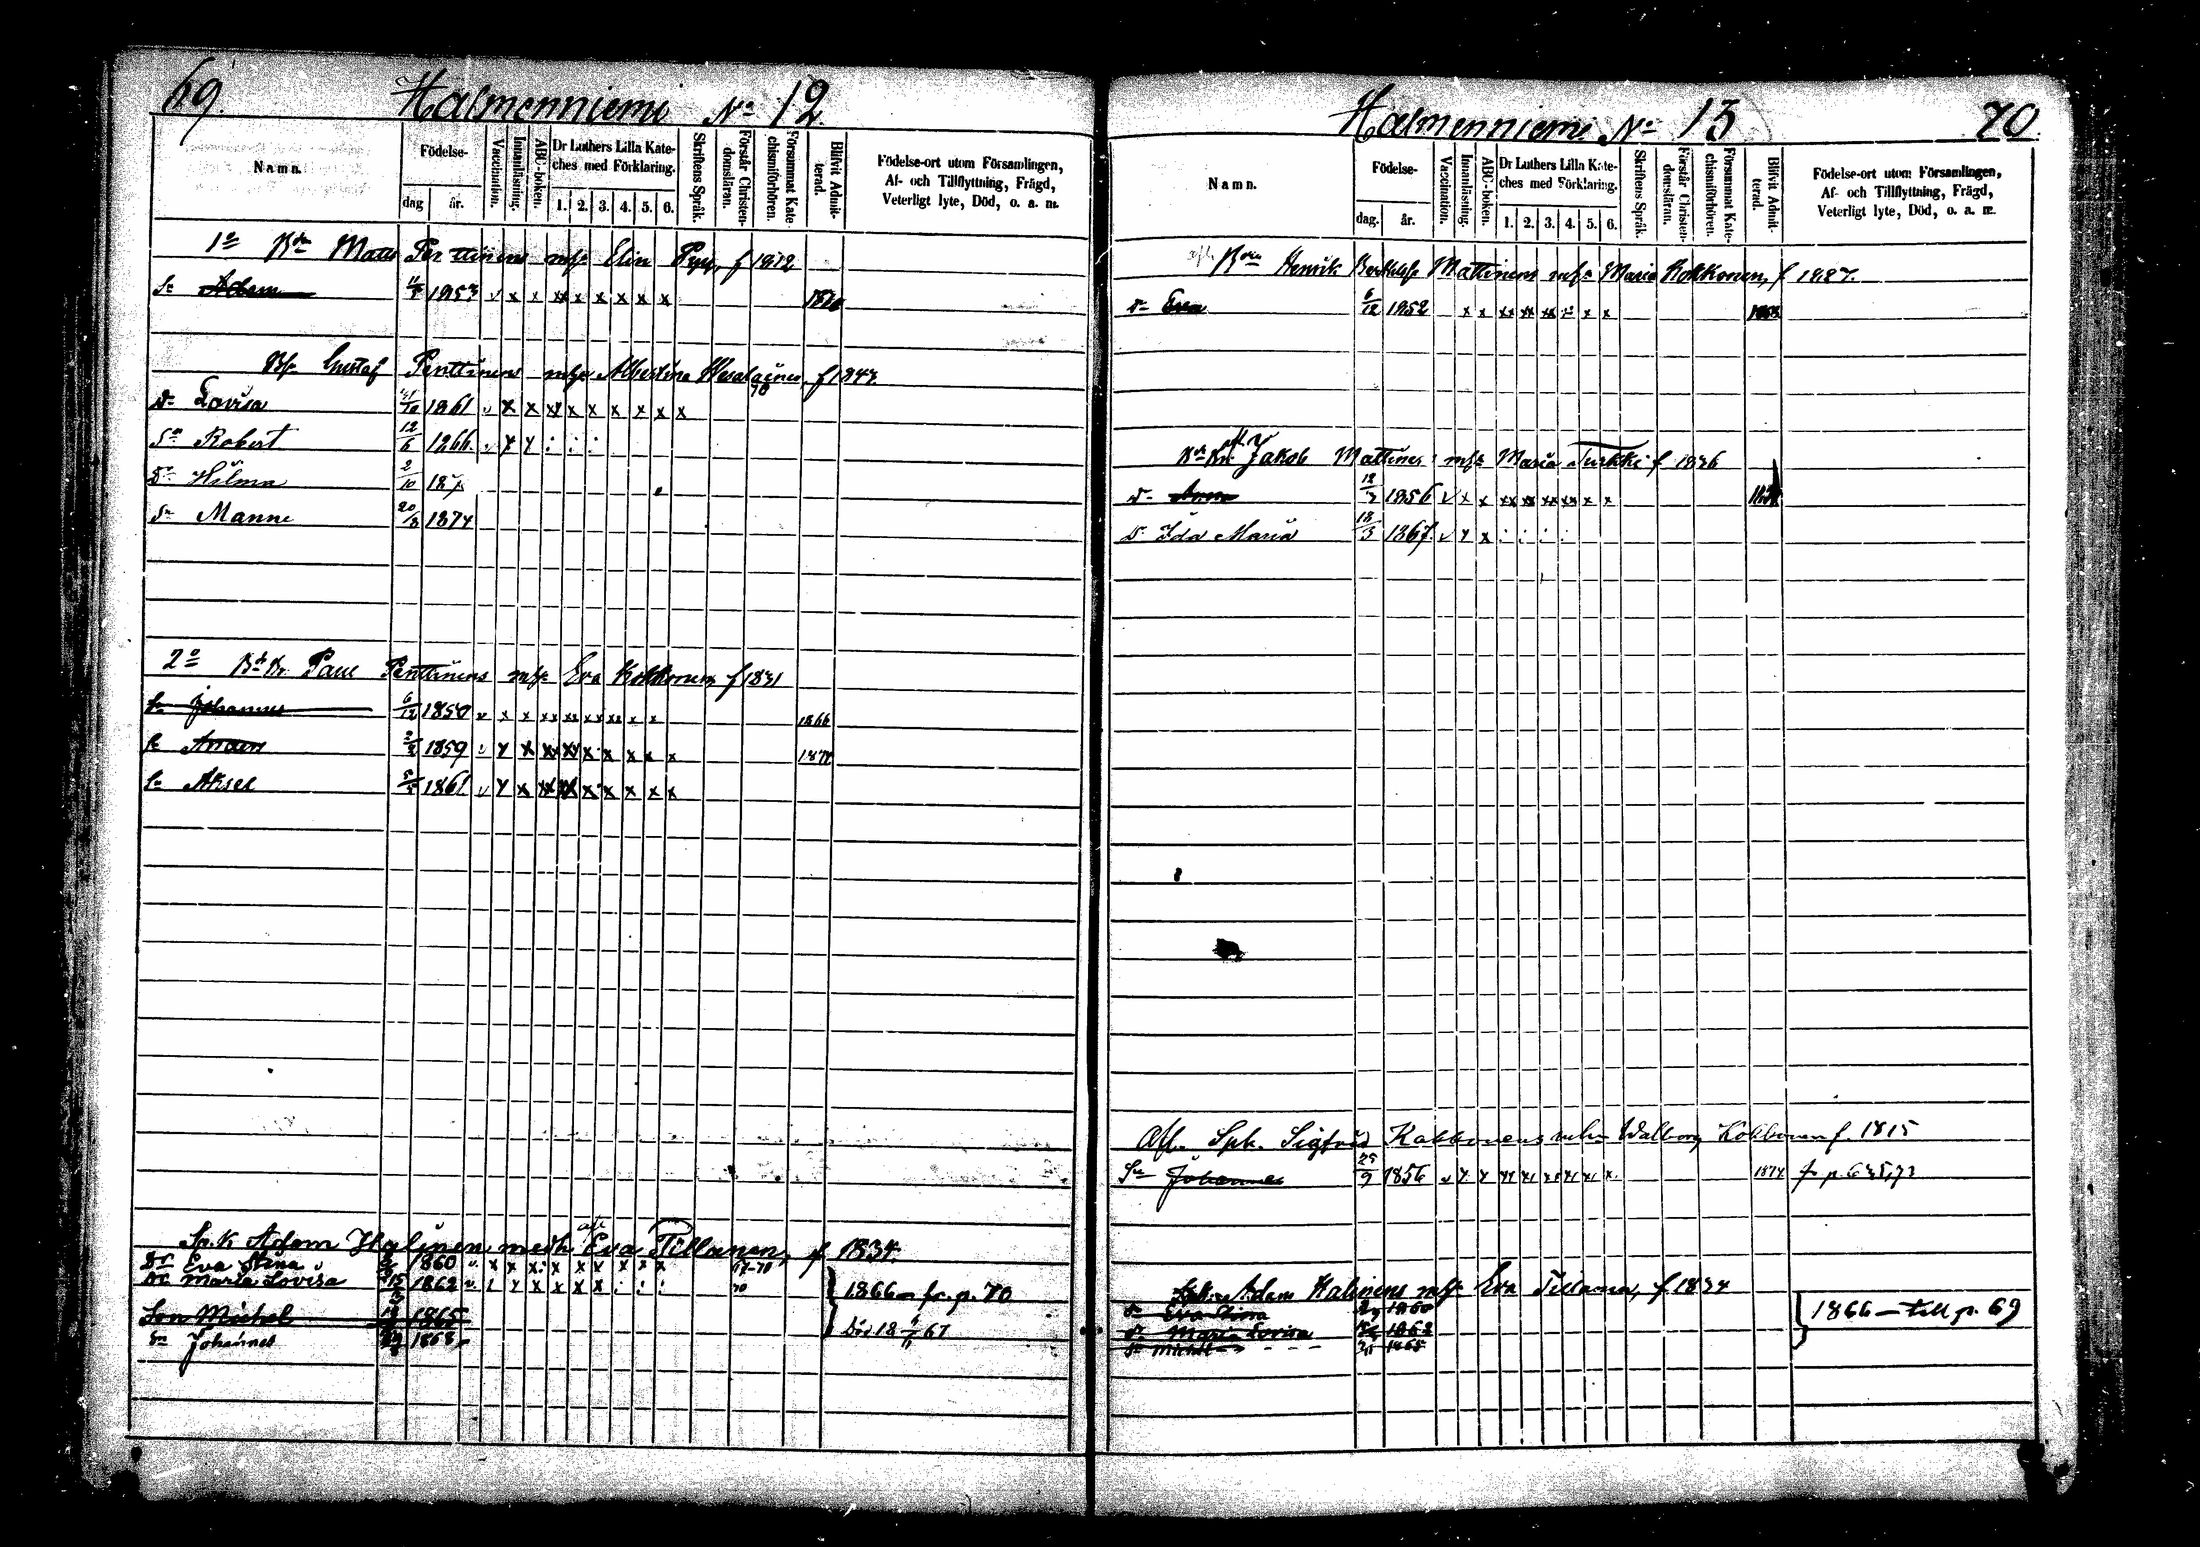 69.
Halmenniemi No 12.
Namn.
Födelse-
dag
år.
Vaccination.
Innanläsning.
ABC-boken.
Dr Luthers Lilla Kate-
ches med Förklaring.
1. 2. 3. 4. 5. 6.
Skriftens Språk.
Förstår Christen-
domsläran.
Försummat Kate-
chismiförhören.
Blifvit Admit-
terad.
Födelse-ort utom Församlingen,
Af- och Tillflyttning, Frägd,
Veterligt lyte, Död, o. a. m.
1o Matts Penttinens Elin f 1812
Sn Adam 1853 v x x xx x x x x x
Gustaf Penttinens Albertina f 1843
Dr Lovisa 1861 v x x x x x x x x x
Sn Robert 12/6 1866. v x x : : :
Dr Hilma 2/10 187
Sn Manne 20/3 1874
2o Paul Penttinens Eva Kokkonen f 1831
Sn Johannes 6/12 1850 v x x xx xx xx xx x x 1866
Sn 1859 v x x xx xx x x x x x 1874
Sn Aksel 1861 v x x xx xx x x x x x
Sp.K Adam Halinen medh Eva Tillanen, f 1834.
Dr Eva Stina 1860 v. x x x: x x x x x x 67-70
Dr Maria Lovisa 1862 v. x x x x x : : : 70
1866 fr. p. 70
Son Michel 1865
Död 18 67
Sn Johannes 1868
Halmenniemi No 13
70.
Namn.
Födelse-
dag.
år.
Vaccination.
Innanläsning.
ABC-boken.
Dr Luthers Lilla Kate-
ches med Förklaring.
1. 2. 3. 4. 5. 6.
Skriftens Språk.
Förstår Christen-
domsläran.
Försummat Kate-
chismiförhören.
Blifvit Admit-
terad.
Födelse-ort utom Församlingen,
Af- och Tillflyttning, Frägd,
Veterligt lyte, Död, o. a. m.
Henrik Mattinens Maria Kokkonen, f 1827.
Dr Eva 6/12 1852 x x xx xx xx x x
Jakob Mattinens Maria Turkki f. 1826
Dr 1856 v x x xx xx xx xx x x
Dr Ida Maria 18/3 1867. v x x : : : :
Afl. Sph. Sigfrid Kokkonens Walborg Kokkonen f. 1815
Sn Johannes 25/9 1856 v x x xx xx xx xx xx x. 1874
Adam Halinens Eva Tillanen, f 1834
Dr Eva Stina 1860
Dr Maria Lovisa 1862
1866 — till p. 69
Sn Michel 1865